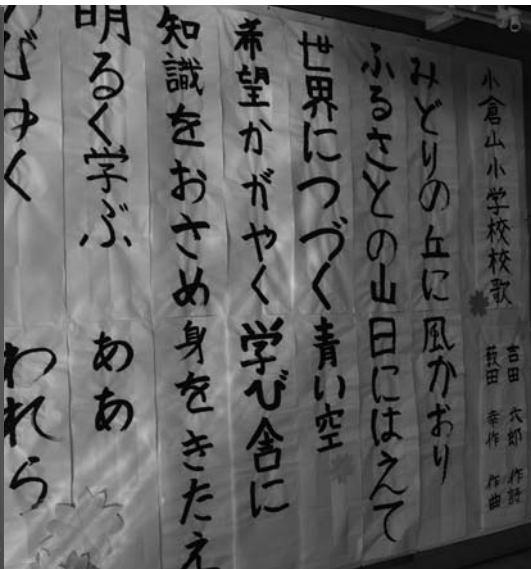 小倉山小学校校歌
吉田 六郎 作詩
薮田 幸作 作曲
みどりの丘に 風かおり
ふるさとの山 日にはえて
世界につづく 青い空
希望かがやく 学び舎に
知識をおさめ 身をきたえ
明るく学ぶ ああ
のびゆく われら